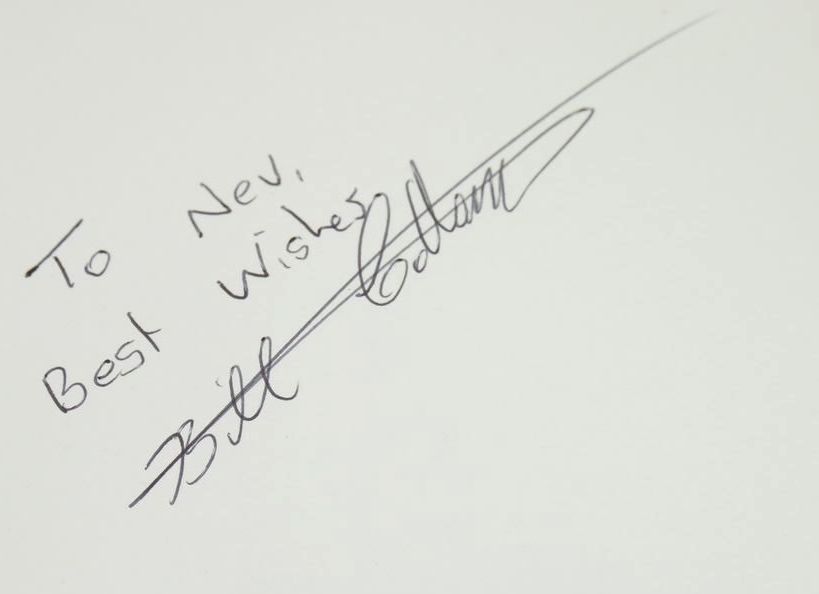 To Nev.
Best Wishes
Bill